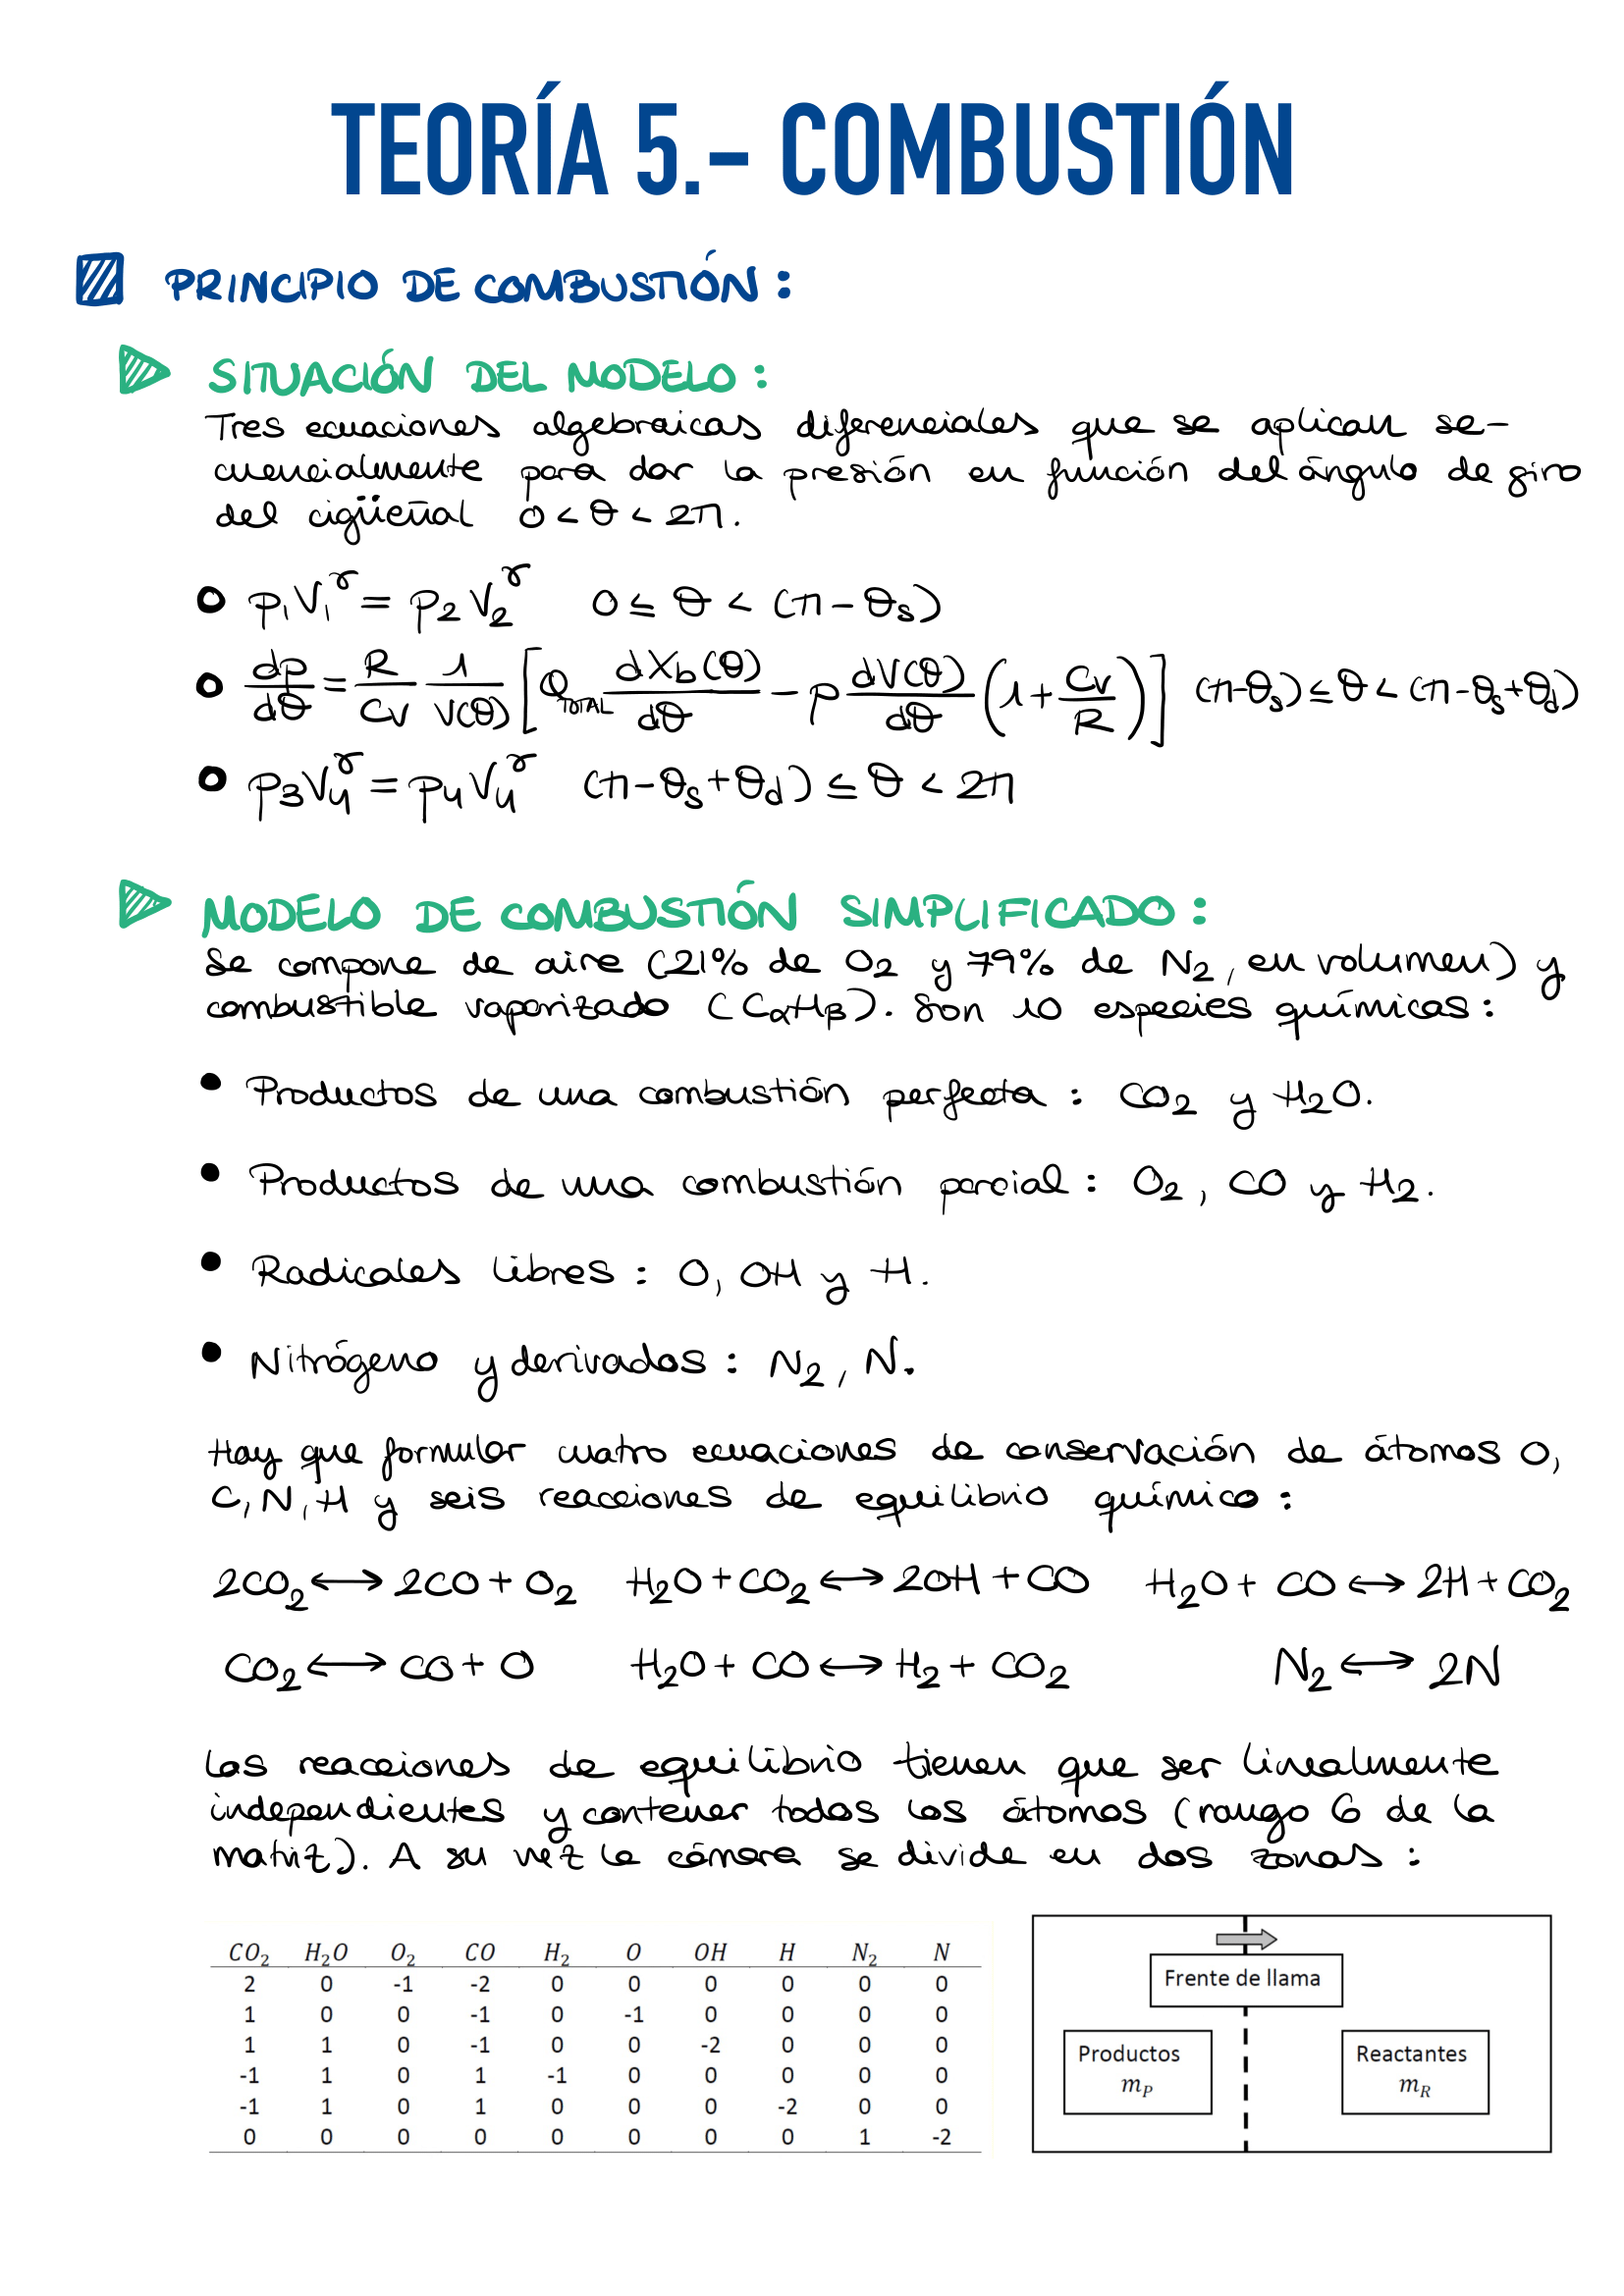 TEORÍA 5.- COMBUSTIÓN
PRINCIPIO DE COMBUSTIÓN:
SITUACIÓN DEL MODELO:
Tres ecuaciones algebraicas diferenciales que se aplican se-
cuencialmente para dar la presión en función del ángulo de giro
del cigüeñal 0 < θ < 2π.
p₁V₁^γ = p₂V₂^γ 0 ≤ θ < (π-θs)
dp/dθ = R/Cv 1/V(θ) [Q_TOTAL dXb(θ)/dθ - p dV(θ)/dθ (1 + Cv/R)] (π-θs) ≤ θ < (π-θs+θd)
p₃V₄^γ = p₄V₄^γ (π-θs+θd) ≤ θ < 2π
MODELO DE COMBUSTIÓN SIMPLIFICADO:
Se compone de aire (21% de O₂ y 79% de N₂, en volumen) y
combustible vaporizado (CαHβ). Son 10 especies químicas:
• Productos de una combustión perfecta: CO₂ y H₂O.
• Productos de una combustión parcial: O₂, CO y H₂.
• Radicales libres: O, OH y H.
• Nitrógeno y derivados: N₂, N.
Hay que formular cuatro ecuaciones de conservación de átomos O,
C, N, H y seis reacciones de equilibrio químico:
2CO₂ ⟷ 2CO + O₂ H₂O + CO₂ ⟷ 2OH + CO H₂O + CO ⟷ 2H + CO₂
CO₂ ⟷ CO + O H₂O + CO ⟷ H₂ + CO₂ N₂ ⟷ 2N
Las reacciones de equilibrio tienen que ser linealmente
independientes y contener todos los átomos (rango 6 de la
matriz). A su vez la cámara se divide en dos zonas:
CO₂ H₂O O₂ CO H₂ O OH H N₂ N
2 0 -1 -2 0 0 0 0 0 0
1 0 0 -1 0 -1 0 0 0 0
1 1 0 -1 0 0 -2 0 0 0
-1 1 0 1 -1 0 0 0 0 0
-1 1 0 1 0 0 0 -2 0 0
0 0 0 0 0 0 0 0 1 -2
Frente de llama
Productos
m_P
Reactantes
m_R